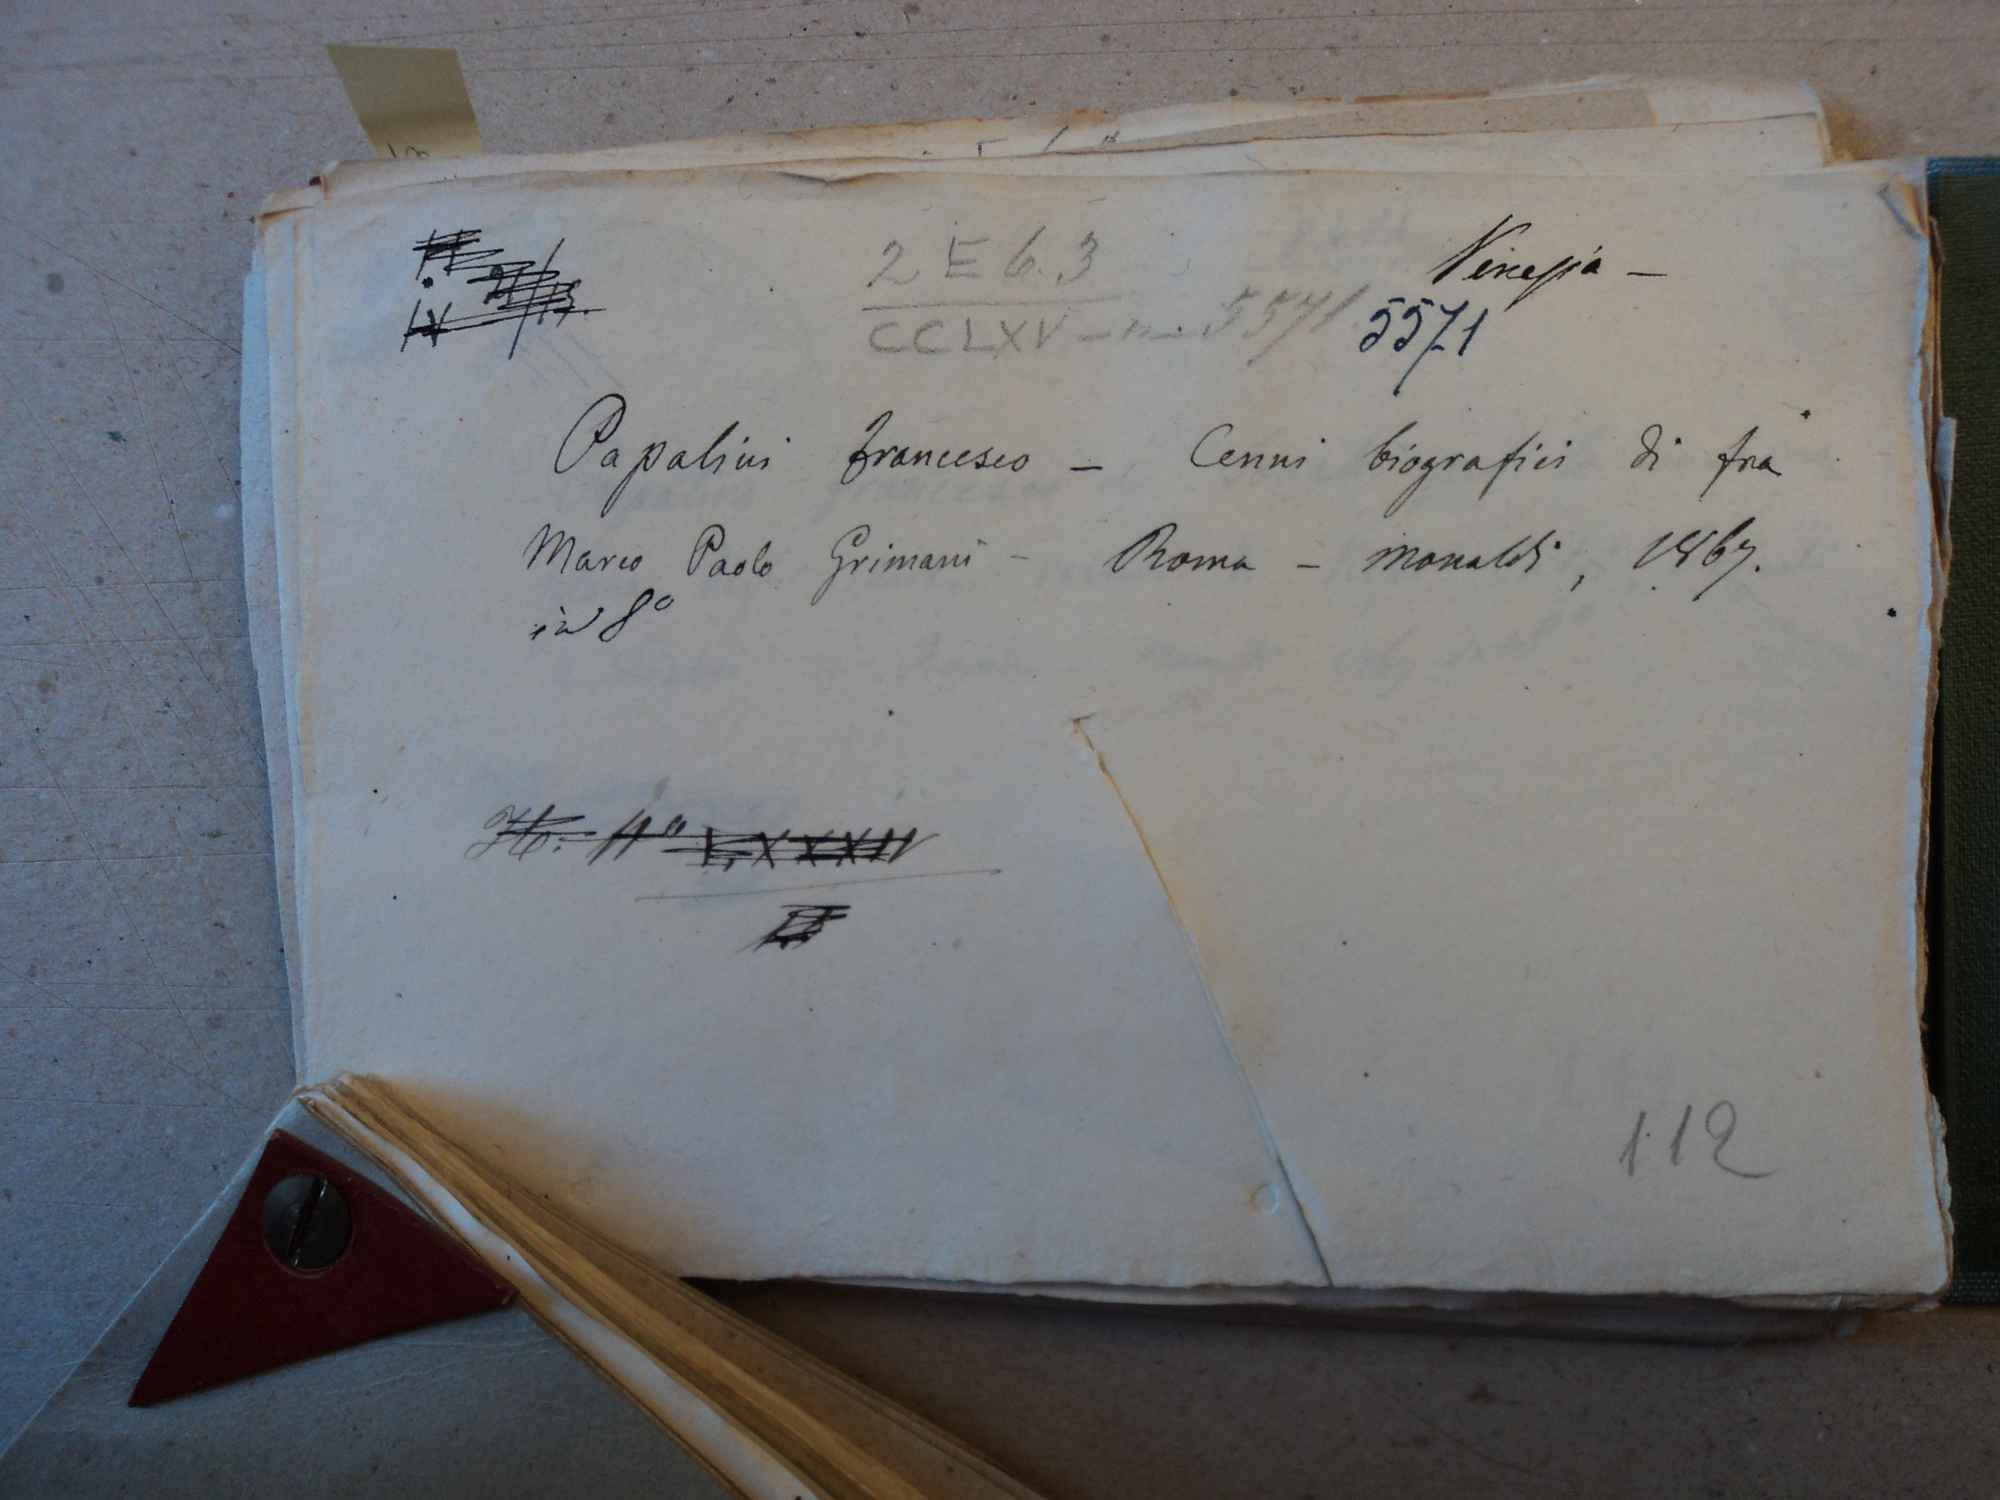 2 E 6.3
CCLXV - n. 5571
Venezia -
5571
Papalini Francesco - Cenni biografici di fra
Marco Paolo Grimani - Roma - Monaldi, 1867.
in 8°
112